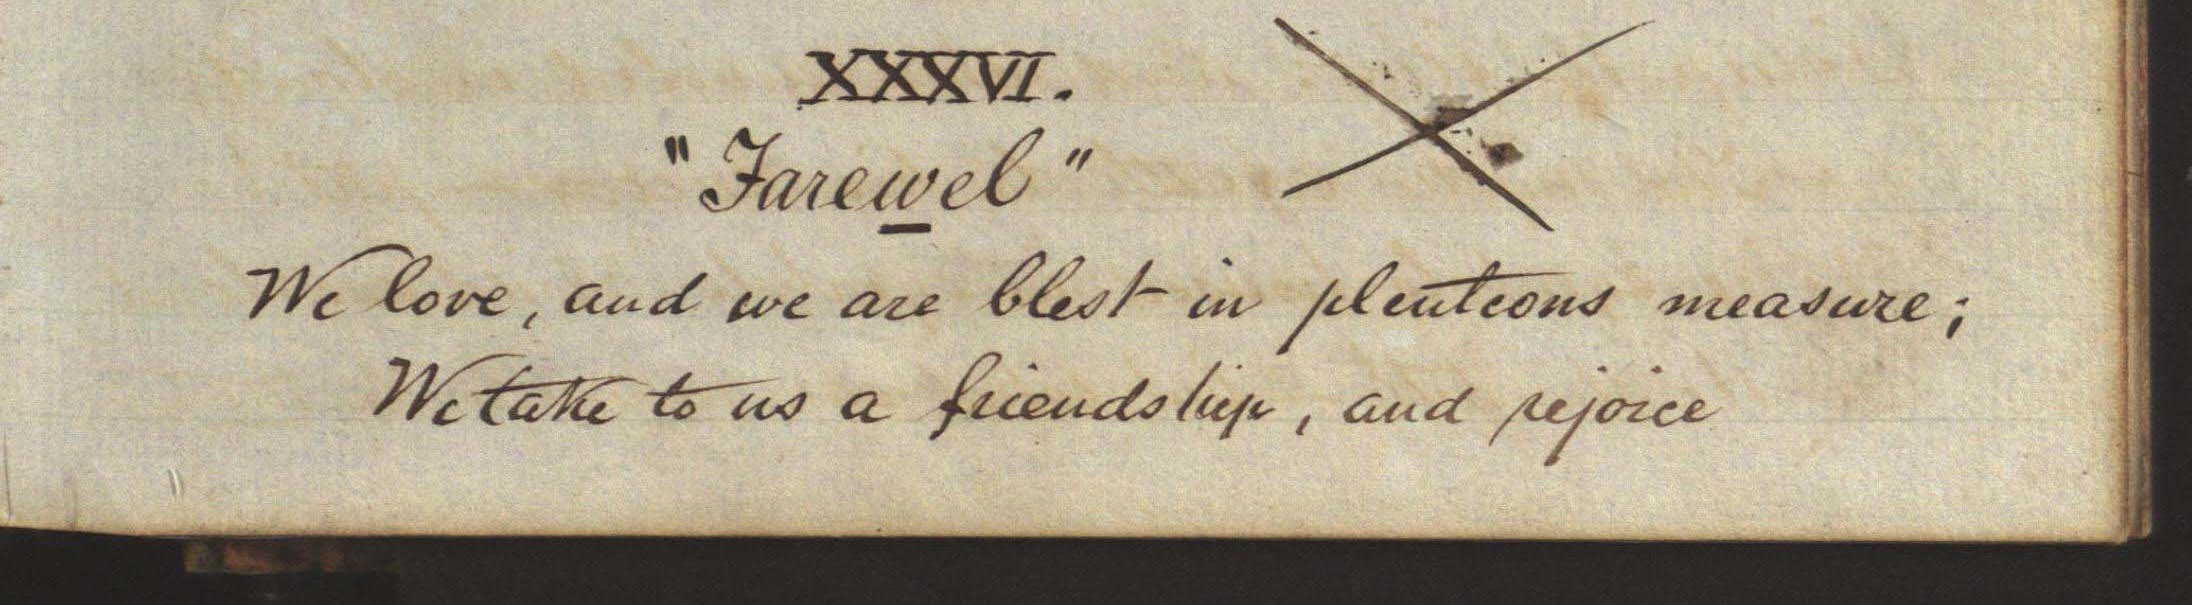 XXXVI.
"Farewel"
We love, and we are blest in plenteous measure;
We take to us a friendship, and rejoice